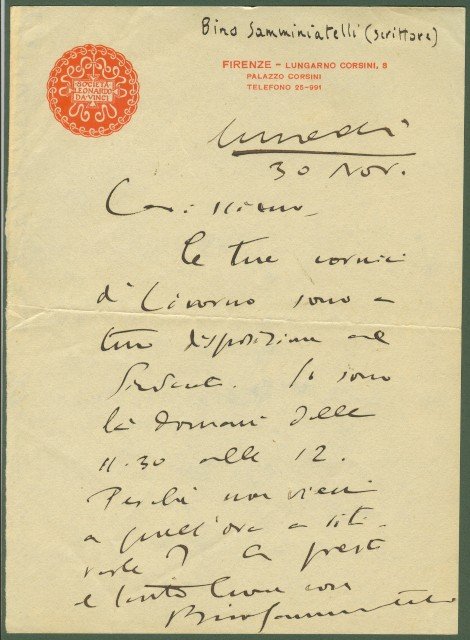 Bino Samminiatelli (scrittore)
SOCIETÀ
LEONARDO
DA VINCI
FIRENZE – LUNGARNO CORSINI, 8
PALAZZO CORSINI
TELEFONO 25-991
lunedì
30 Nov.
Carissimo,
le tue cornici
di Livorno sono a
tua disposizione al
Io sono
là domani dalle
11.30 alle 12.
Perché non vieni
a quell'ora a riti-
rarle? A presto
e tante cose con
Bino Samminiatelli